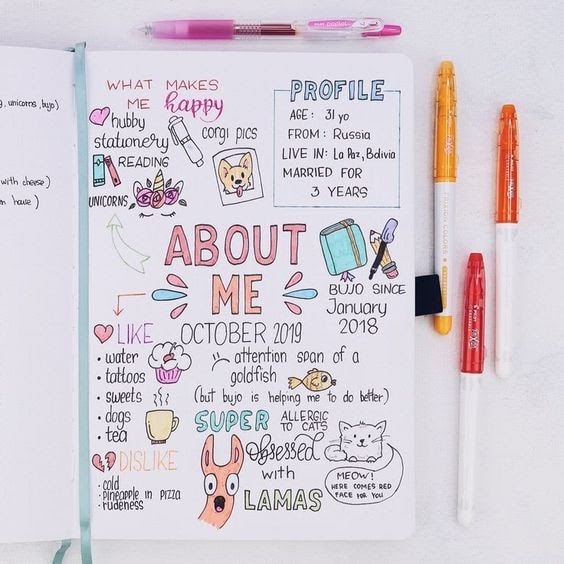 , unicorns, bujo)
with cheese)
have)
WHAT MAKES
ME happy
hubby
stationery
corgi pics
READING
UNICORNS
PROFILE
AGE: 31 yo
FROM: Russia
LIVE IN: La Paz, Bolivia
MARRIED FOR
3 YEARS
ABOUT
ME
BUJO SINCE
January
2018
OCTOBER 2019
LIKE
• water
• tattoos
• sweets
• dogs
• tea
attention span of a
goldfish
(but bujo is helping me to do better)
SUPER ALLERGIC
TO CATS
obsessed
with
LAMAS
MEOW!
HERE COMES RED
FACE FOR YOU
DISLIKE
• cold
• pineapple in pizza
• rudeness